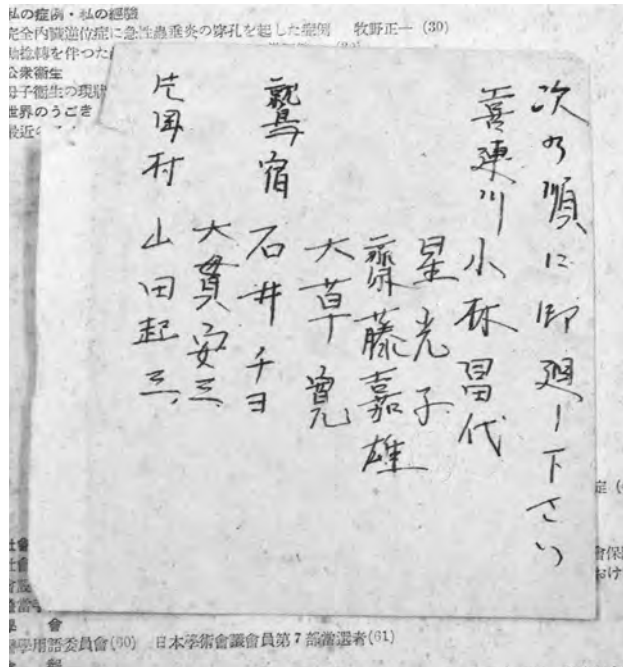 私の症例・私の經驗
完全内臟逆位症に急性蟲垂炎の穿孔を起した症例　牧野正一 (30)
捻轉を伴つた
公衆衞生
母子衞生の現
世界のうごき
最近
次の順に御廻し下さい
喜連川 小林昌代
星光子
齋藤嘉雄
大草寛
鷲宿 石井チヨ
大貫安三
片岡村 山田起三
會
學用語委員會(60)　日本學術會議會員第7部當選者(61)